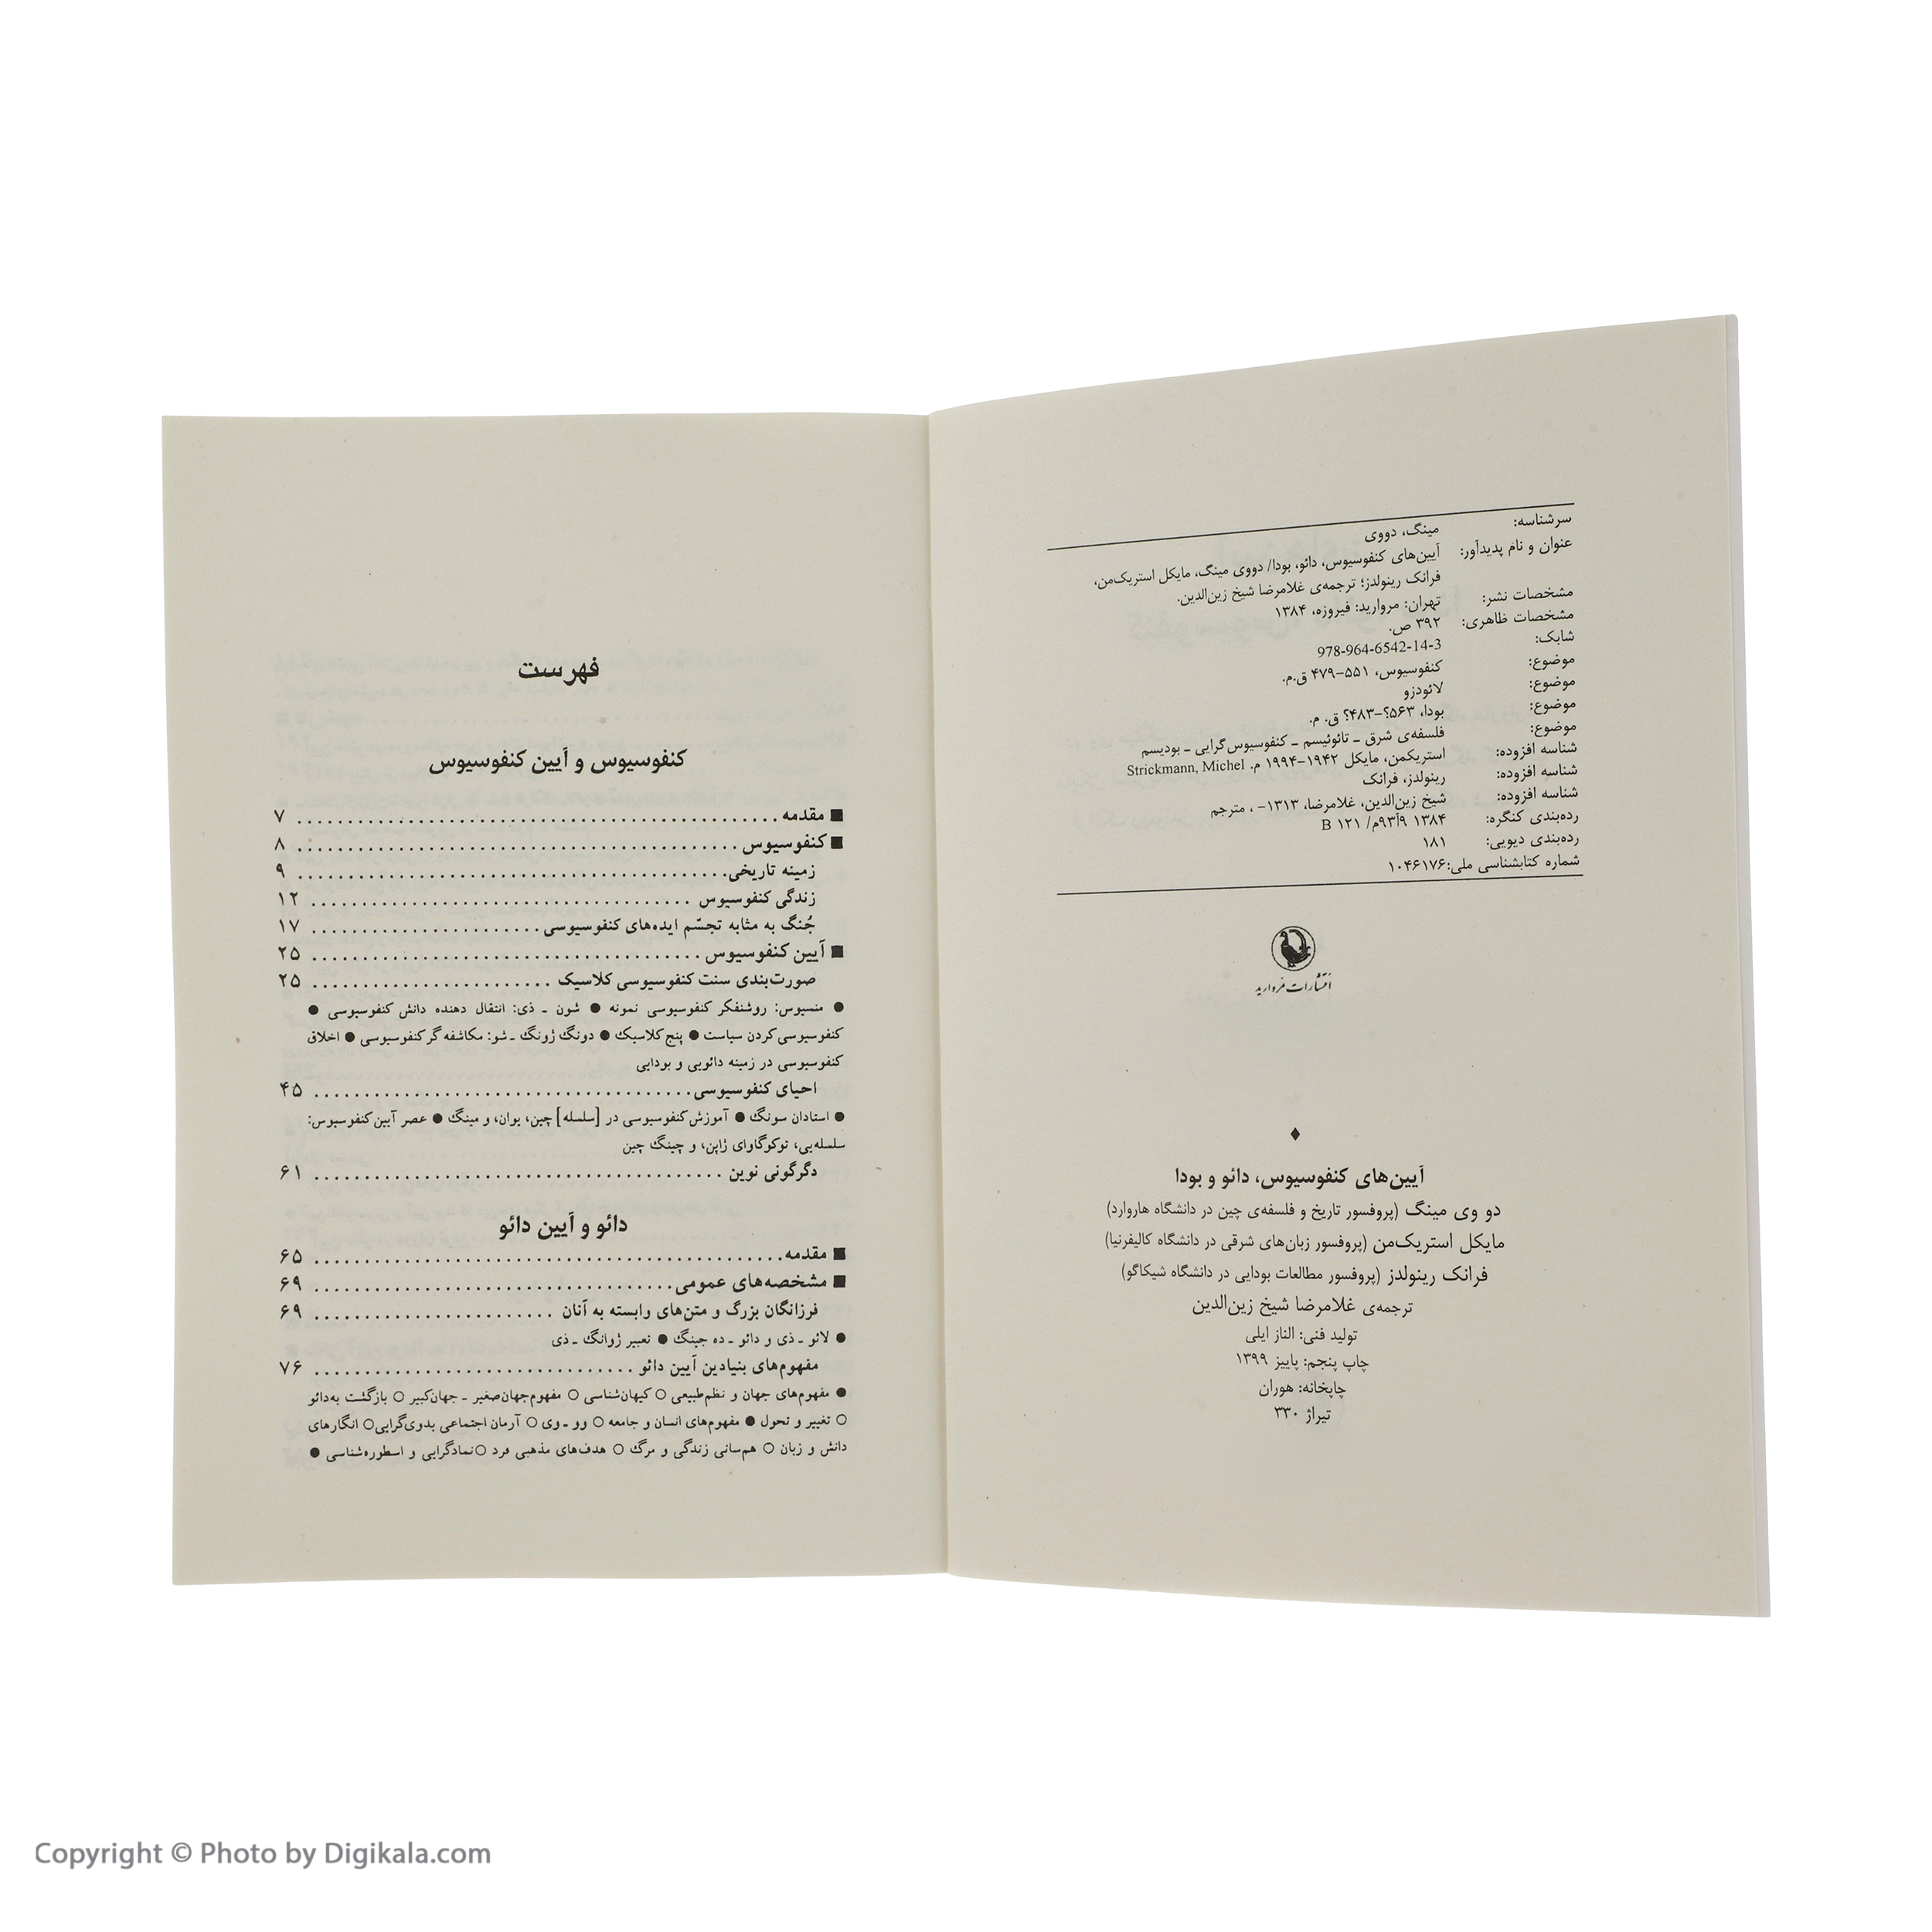 سرشناسه: مینگ، دووی
عنوان و نام پدیدآور: آیین‌های کنفوسیوس، دائو، بودا/ دووی مینگ، مایکل استریک‌من،
فرانک رینولدز؛ ترجمه‌ی غلامرضا شیخ زین‌الدین.
مشخصات نشر: تهران: مروارید: فیروزه، ۱۳۸۴
مشخصات ظاهری: ۳۹۲ ص.
شابک: 978-964-6542-14-3
موضوع: کنفوسیوس، ۵۵۱-۴۷۹ ق.م.
موضوع: لائودزو
موضوع: بودا، ۵۶۳؟-۴۸۳؟ ق. م.
موضوع: فلسفه‌ی شرق ـ تائوئیسم ـ کنفوسیوس‌گرایی ـ بودیسم
شناسه افزوده: استریکمن، مایکل ۱۹۴۲-۱۹۹۴ م. Strickmann, Michel
شناسه افزوده: رینولدز، فرانک
شناسه افزوده: شیخ زین‌الدین، غلامرضا، ۱۳۱۳- ، مترجم
رده‌بندی کنگره: ۱۳۸۴ ۹آ۹۳م/ B ۱۲۱
رده‌بندی دیویی: ۱۸۱
شماره کتابشناسی ملی: ۱۰۴۶۱۷۶
انتشارات مروارید
آیین‌های کنفوسیوس، دائو و بودا
دو وی مینگ (پروفسور تاریخ و فلسفه‌ی چین در دانشگاه هاروارد)
مایکل استریک‌من (پروفسور زبان‌های شرقی در دانشگاه کالیفرنیا)
فرانک رینولدز (پروفسور مطالعات بودایی در دانشگاه شیکاگو)
ترجمه‌ی غلامرضا شیخ زین‌الدین
تولید فنی: الناز ایلی
چاپ پنجم: پاییز ۱۳۹۹
چاپخانه: هوران
تیراژ ۳۳۰
فهرست
کنفوسیوس و آیین کنفوسیوس
■ مقدمه ........ ۷
■ کنفوسیوس ........ ۸
زمینه تاریخی ........ ۹
زندگی کنفوسیوس ........ ۱۲
جُنگ به مثابه تجسّم ایده‌های کنفوسیوسی ........ ۱۷
■ آیین کنفوسیوس ........ ۲۵
صورت‌بندی سنت کنفوسیوسی کلاسیک ........ ۲۵
● منسیوس: روشنفکر کنفوسیوسی نمونه ● شون ـ ذی: انتقال دهنده دانش کنفوسیوسی ●
کنفوسیوسی کردن سیاست ● پنج کلاسیک ● دونگ ژونگ ـ شو: مکاشفه گر کنفوسیوسی ● اخلاق
کنفوسیوسی در زمینه دائویی و بودایی
احیای کنفوسیوسی ........ ۴۵
● استادان سونگ ● آموزش کنفوسیوسی در [سلسله] چین، یوان، و مینگ ● عصر آیین کنفوسیوس:
سلسله‌یی، توکوگاوای ژاپن، و چینگ چین
دگرگونی نوین ........ ۶۱
دائو و آیین دائو
■ مقدمه ........ ۶۵
■ مشخصه‌های عمومی ........ ۶۹
فرزانگان بزرگ و متن‌های وابسته به آنان ........ ۶۹
● لائو ـ ذی و دائو ـ ده جینگ ● تعبیر ژوانگ ـ ذی
مفهوم‌های بنیادین آیین دائو ........ ۷۶
● مفهوم‌های جهان و نظم‌طبیعی ○ کیهان‌شناسی ○ مفهوم‌جهان‌صغیر ـ جهان‌کبیر ○ بازگشت به‌دائو
○ تغییر و تحول ● مفهوم‌های انسان و جامعه ○ وو ـ وی ○ آرمان اجتماعی بدوی‌گرایی ○ انگارهای
دانش و زبان ○ هم‌سانی زندگی و مرگ ○ هدف‌های مذهبی فرد ○ نمادگرایی و اسطوره‌شناسی ●
Copyright © Photo by Digikala.com